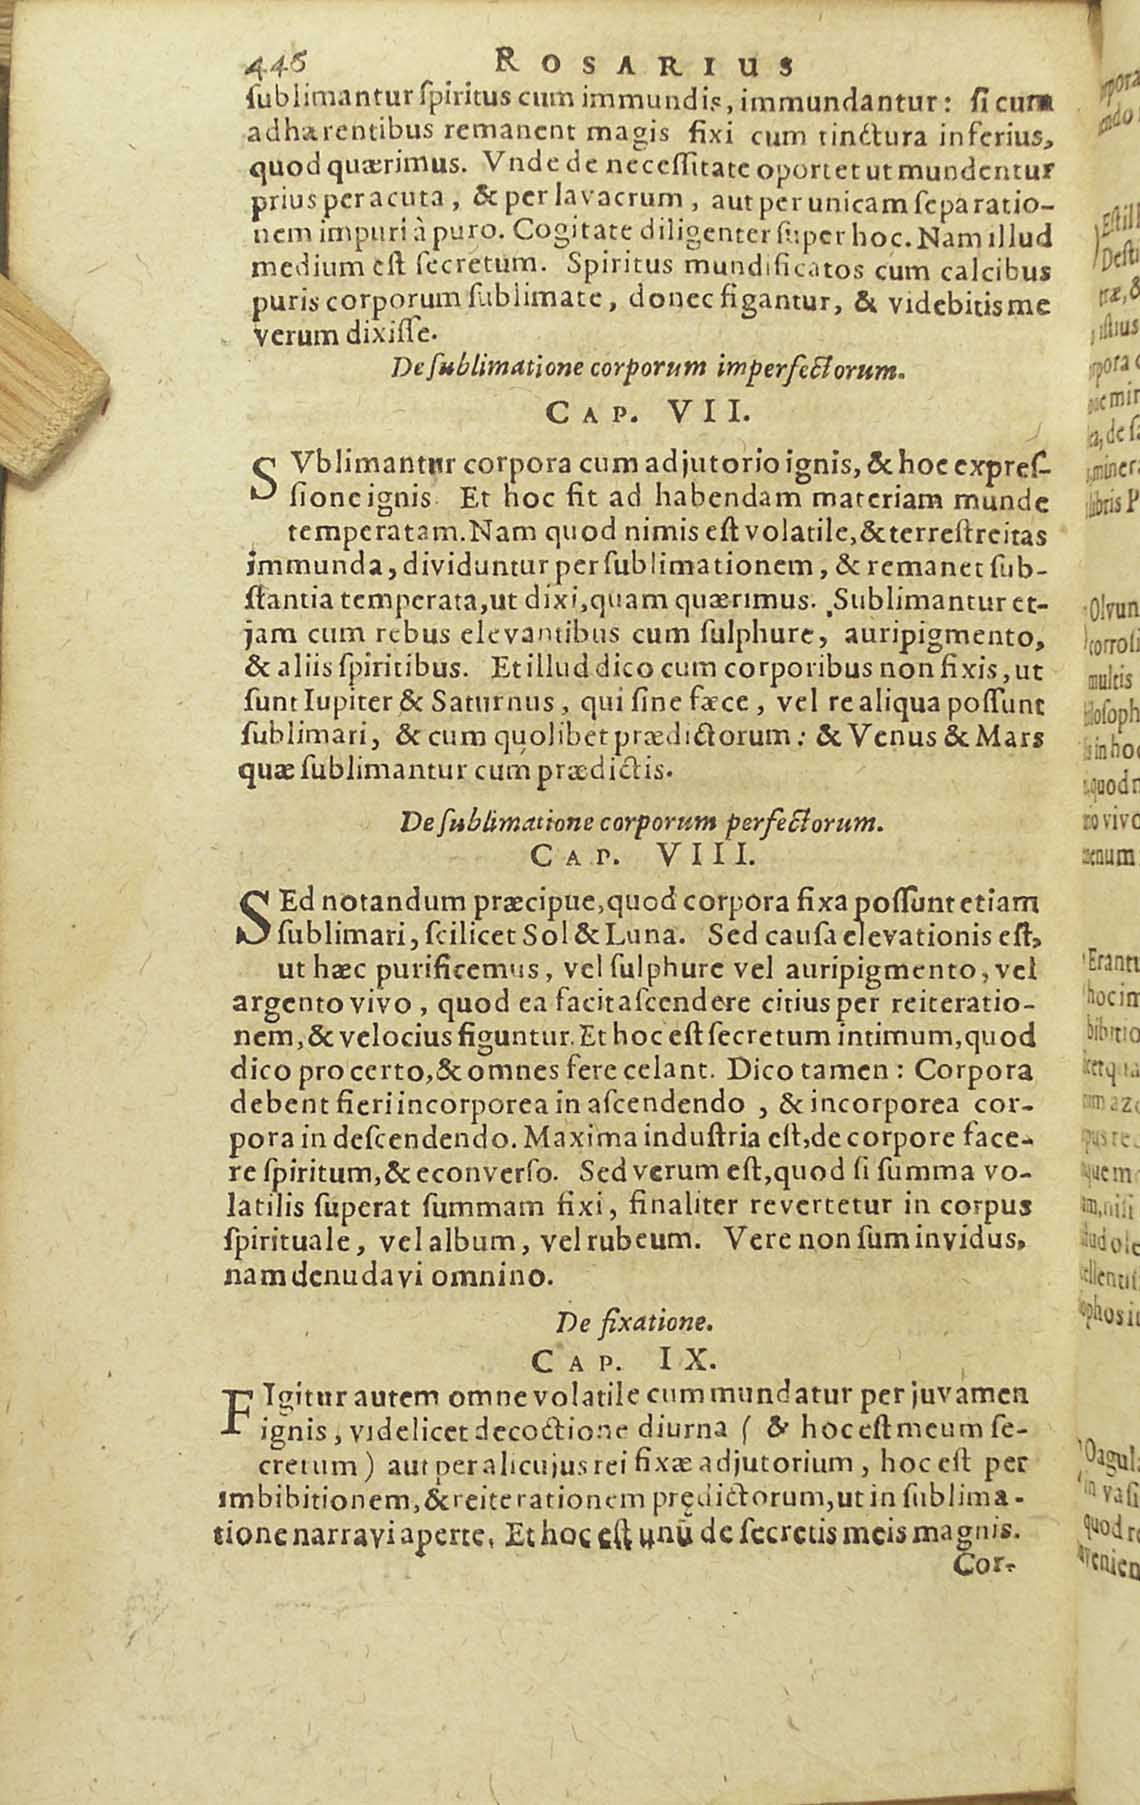 446 ROSARIUS
ſublimantur ſpiritus cum immundis, immundantur: ſi cum
adharentibus remanent magis fixi cum tinctura inferius,
quod quærimus. Vnde de neceſſitate oportet ut mundentur
prius per acuta, & per lavacrum, aut per unicam ſeparatio-
nem impuri à puro. Cogitate diligenter ſuper hoc. Nam illud
medium eſt ſecretum. Spiritus mundificatos cum calcibus
puris corporum ſublimate, donec figantur, & videbitis me
verum dixiſſe.
De ſublimatione corporum imperfectorum.
CAP. VII.
SVblimantur corpora cum adjutorio ignis, & hoc expreſ-
ſione ignis Et hoc fit ad habendam materiam munde
temperatam. Nam quod nimis eſt volatile, & terreſtreitas
immunda, dividuntur per ſublimationem, & remanet ſub-
ſtantia temperata, ut dixi, quam quærimus. Sublimantur et-
jam cum rebus elevantibus cum ſulphure, auripigmento,
& aliis ſpiritibus. Et illud dico cum corporibus non fixis, ut
ſunt Iupiter & Saturnus, qui ſine fæce, vel re aliqua poſſunt
ſublimari, & cum quolibet prædictorum: & Venus & Mars
quæ ſublimantur cum prædictis.
De ſublimatione corporum perfectorum.
CAP. VIII.
SEd notandum præcipue, quod corpora fixa poſſunt etiam
ſublimari, ſcilicet Sol & Luna. Sed cauſa elevationis eſt,
ut hæc purificemus, vel ſulphure vel auripigmento, vel
argento vivo, quod ea facit aſcendere citius per reiteratio-
nem, & velocius figuntur. Et hoc eſt ſecretum intimum, quod
dico pro certo, & omnes fere celant. Dico tamen: Corpora
debent fieri incorporea in aſcendendo, & incorporea cor-
pora in deſcendendo. Maxima induſtria eſt, de corpore face-
re ſpiritum, & econverſo. Sed verum eſt, quod ſi ſumma vo-
latilis ſuperat ſummam fixi, finaliter revertetur in corpus
ſpirituale, vel album, vel rubeum. Vere non ſum invidus,
nam denudavi omnino.
De fixatione.
CAP. IX.
FIgitur autem omne volatile cum mundatur per juvamen
ignis, videlicet decoctione diurna (& hoc eſt meum ſe-
cretum) aut per alicujus rei fixæ adjutorium, hoc eſt per
imbibitionem, & reiterationem prędictorum, ut in ſublima-
tione narravi aperte. Et hoc eſt unū de ſecretis meis magnis.
Cor-